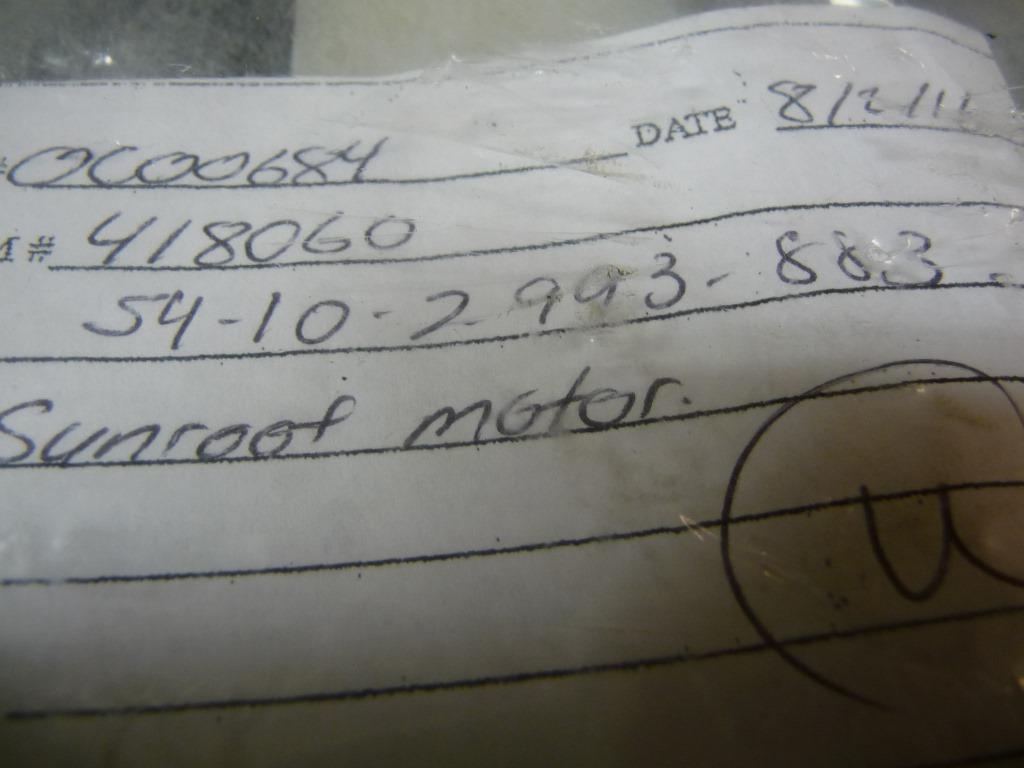 #0C00684 DATE 8/2/11
M# 418060
54-10-2993-883
Sunroof motor.
U